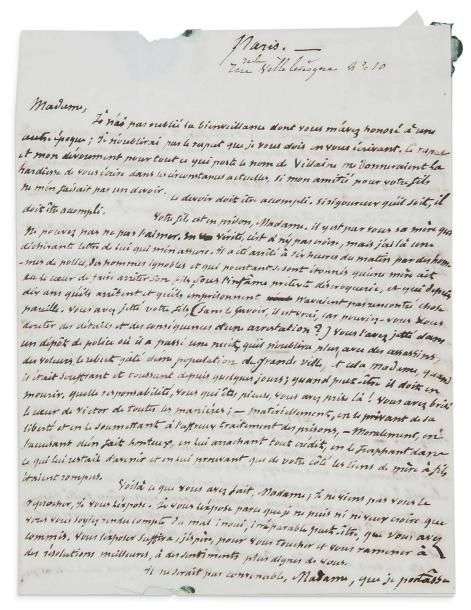 Paris. —
rue Ville l'évêque N° 10
Madame,
Je n'ai pas oublié la bienveillance dont vous m'avez honoré à une
autre époque; Si n'oublirai pas le respect que je vous dois en vous écrivant. Le respect
et mon dévouement pour tout ce qui porte le nom de Villaine me donneraient la
hardiesse de vous écrire dans les circonstances actuelles, si mon amitié pour votre fils
ne m'en faisait pas un devoir.
Ce devoir doit être accompli. Si rigoureux qu'il soit, il
doit être accompli.
Votre fils est en prison, Madame, il y est par vous sa mère que
ne pouvez pas ne pas l'aimer. En vérité, c'est à n'y pas croire, mais j'ai là une
déchirante lettre de lui qui m'en assure. Il a été arrêté à six heures du matin par des hom-
mes de police, des hommes ignobles et qui pourtant se sont étonnés qu'une mère ait
eu le cœur de faire arrêter son fils sous l'infâme prétexte d'escroquerie, et qui depuis
dix ans qu'ils arrêtent et qu'ils emprisonnent n'avaient pas rencontré chose
pareille. Vous avez jeté votre fils (sans le savoir, il est vrai, car pouviez-vous vous
douter des détails et des conséquences d'une arrestation?) vous l'avez jeté dans
un dépôt de police où il a passé une nuit, qu'il n'oubliera plus, avec des assassins,
des voleurs, le rebut gâté d'une population de grande ville, et cela Madame, quand
il était souffrant et toussant depuis quelques jours; quand peut-être il doit en
mourir, quelle responsabilité, vous qui êtes pieuse, vous avez prise là! Vous avez brisé
le cœur de Victor de toutes les manières; — matériellement, en le privant de sa
liberté et en le soumettant à l'affreux traitement des prisons, — Moralement, en
l'accusant d'un fait honteux, en lui arrachant tout crédit, en le frappant dans
ce qui lui restait d'avenir et en lui prouvant que de votre côté les liens de mère à fils
étaient rompus.
Voilà ce que vous avez fait, Madame; Je ne viens pas vous le
reprocher, je vous l'expose. Je vous l'expose parce que je ne puis ni ne veux croire que
vous vous soyez rendu compte du mal inouï, irréparable peut-être, que vous avez
commis. Vous l'exposer suffira, j'espère, pour vous toucher et vous ramener à
des résolutions meilleures, à des sentiments plus dignes de vous.
Il ne serait pas convenable, Madame, que je portasse